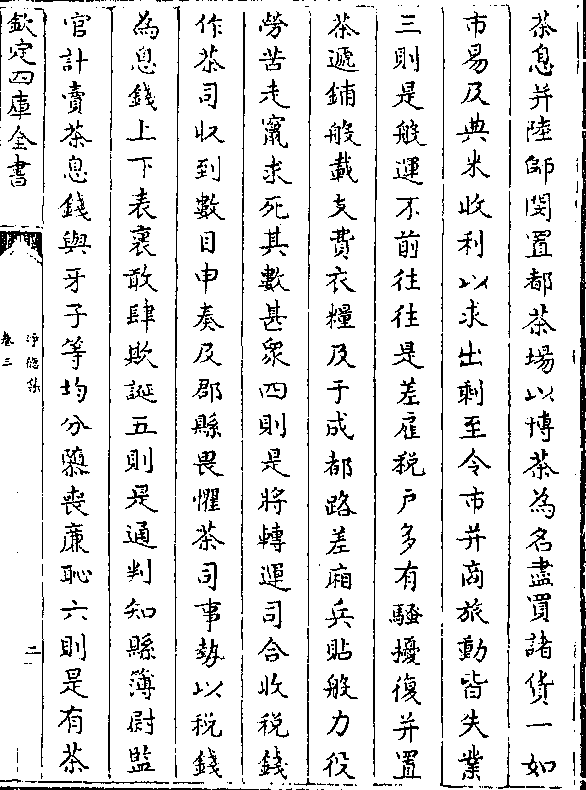 茶息并陸師閔置都茶場以博茶為名盡買諸貨一如
市易及典米收利以求出剩至令市井商旅動皆失業
三則是般運不前往往是差雇税戸多有騷擾復并置
茶遞鋪般載支費衣糧及于成都路差廂兵貼般力役
勞苦走竄求死其數甚衆四則是將轉運司合收税錢
作茶司收到數目申奏及郡縣畏懼茶司事勢以税錢
為息錢上下表裏敢肆欺誕五則是通判知縣簿尉監
官計賣茶息錢與牙子等均分隳喪廉恥六則是有茶
欽定四庫全書
淨德集
卷三
二